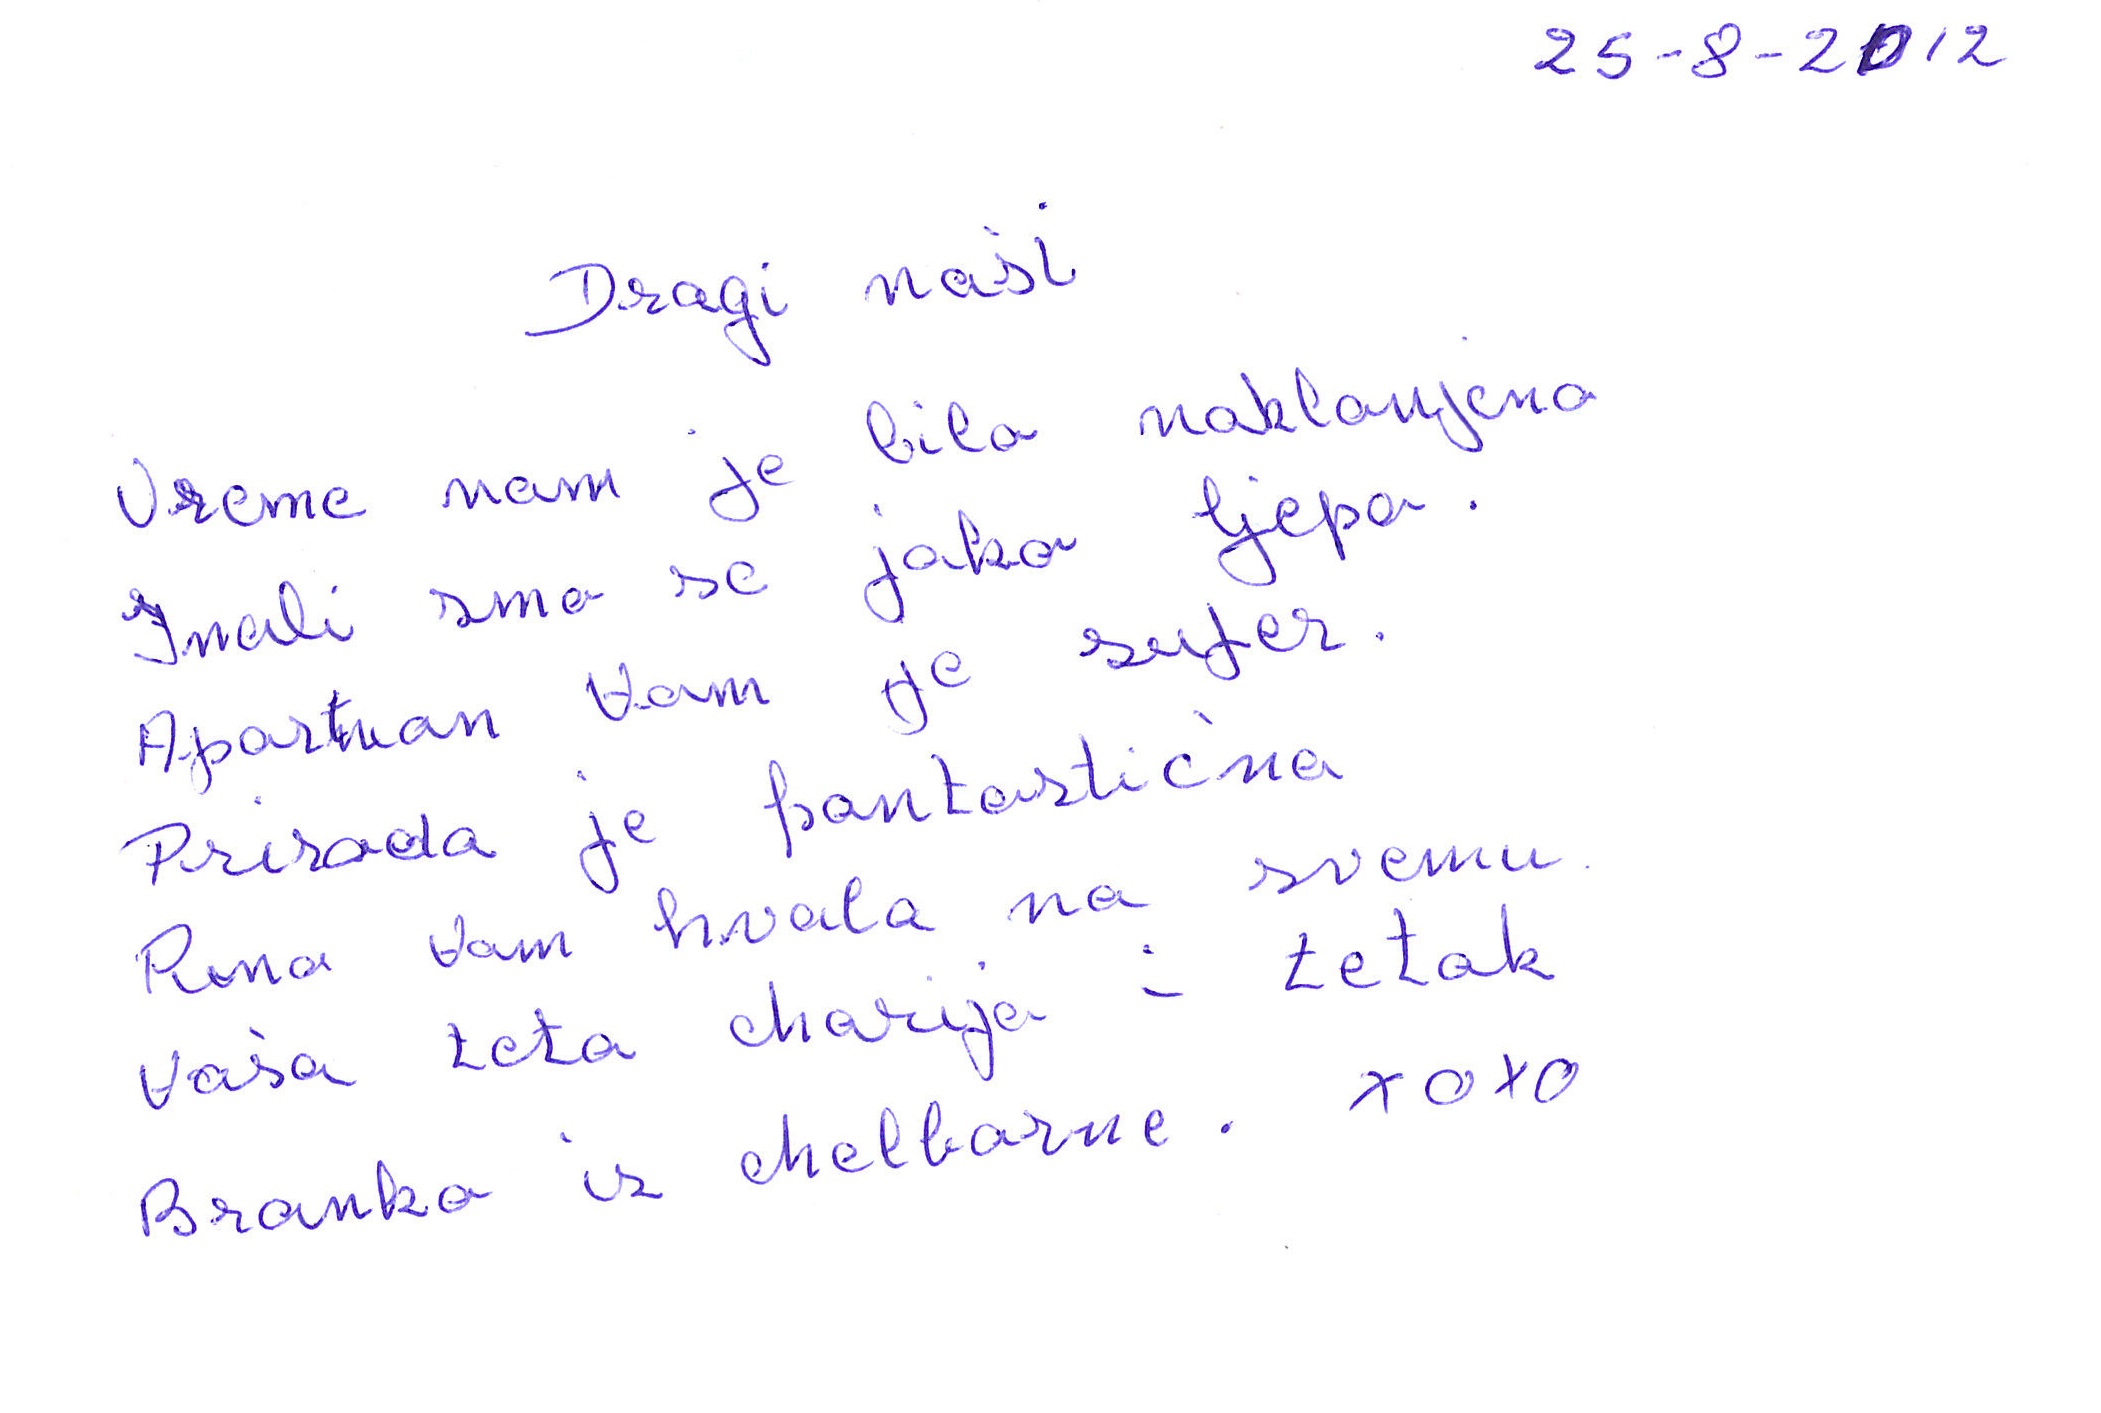 25-8-2012
Dragi naši
Vreme nam je bilo naklonjeno
Imali smo se jako ljepo.
Apartman vam je super.
Priroda je fantastična
Puno vam hvala na svemu.
Vaša teta Marija i tetak
Branko iz Melbarne. XOXO